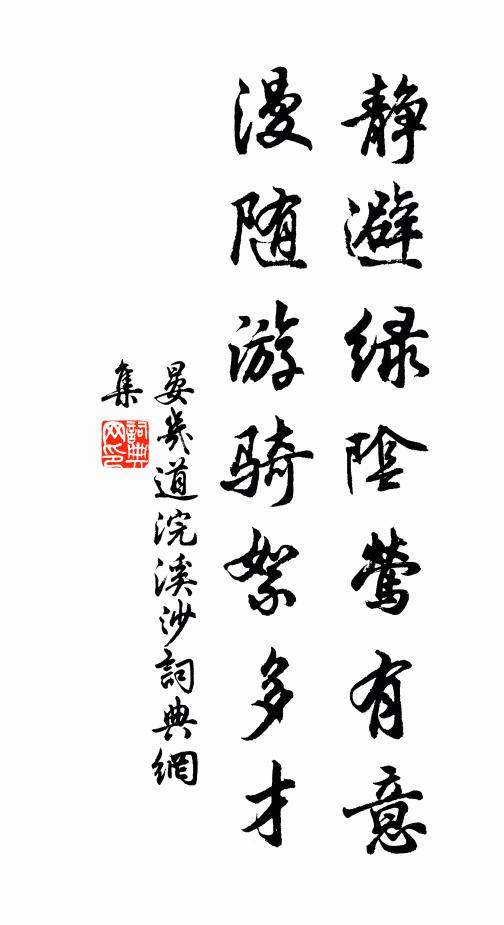 静避绿陰莺有意
漫随游骑絮多才
晏幾道浣溪沙詞典網
集
詞典网印